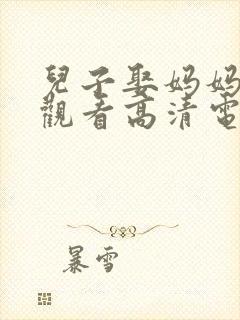 兒子娶媽媽
觀看高清電
暴雪